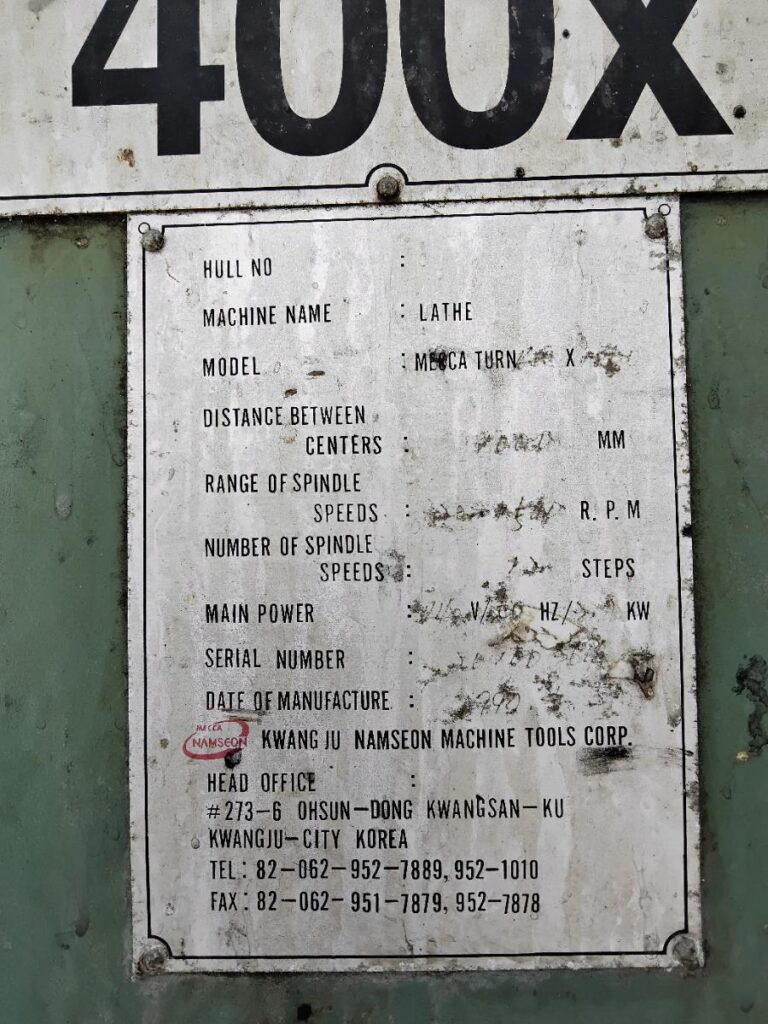 400X
HULL NO :
MACHINE NAME : LATHE
MODEL : MECCA TURN X
DISTANCE BETWEEN
CENTERS : MM
RANGE OF SPINDLE
SPEEDS : R. P. M
NUMBER OF SPINDLE
SPEEDS : STEPS
MAIN POWER : V/ HZ/ KW
SERIAL NUMBER :
DATE OF MANUFACTURE :
MECCA
NAMSEON KWANG JU NAMSEON MACHINE TOOLS CORP.
HEAD OFFICE :
#273-6 OHSUN-DONG KWANGSAN-KU
KWANGJU-CITY KOREA
TEL: 82-062-952-7889, 952-1010
FAX: 82-062-951-7879, 952-7878